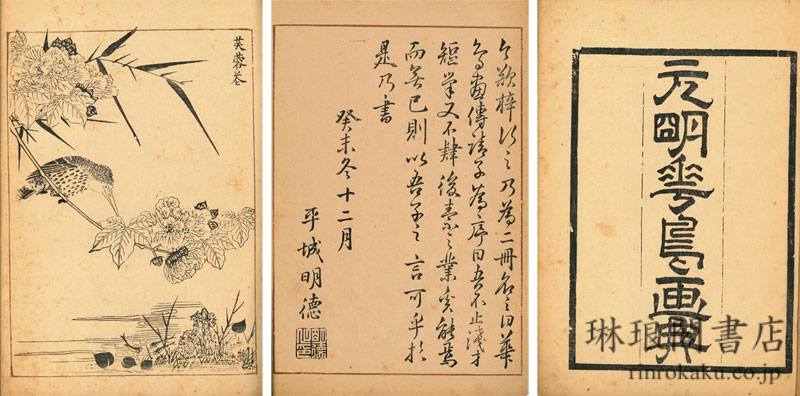 芙蓉花
今欲梓行之乃為二冊名之曰華
鳥畫傳請予為之序曰吾不止淺才
短筆又不肄後素之業奚能焉
而無已則以吾子之言可乎於
是乃書
癸未冬十二月
平城明德
元明華鳥画典
琳琅閣書店
rinrokaku.co.jp